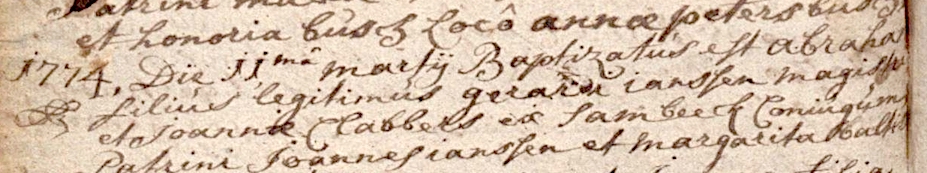 Patrini
et honoria busch Locô annæ petersbusch
1774. Die 11mâ martij Baptizatús est abraha
filiús legitimús gerardi ianssen magistri
et Joannæ Clabbers ex Sambeeck Coniugúm
Patrini Joannes ianssen et margarita
filia